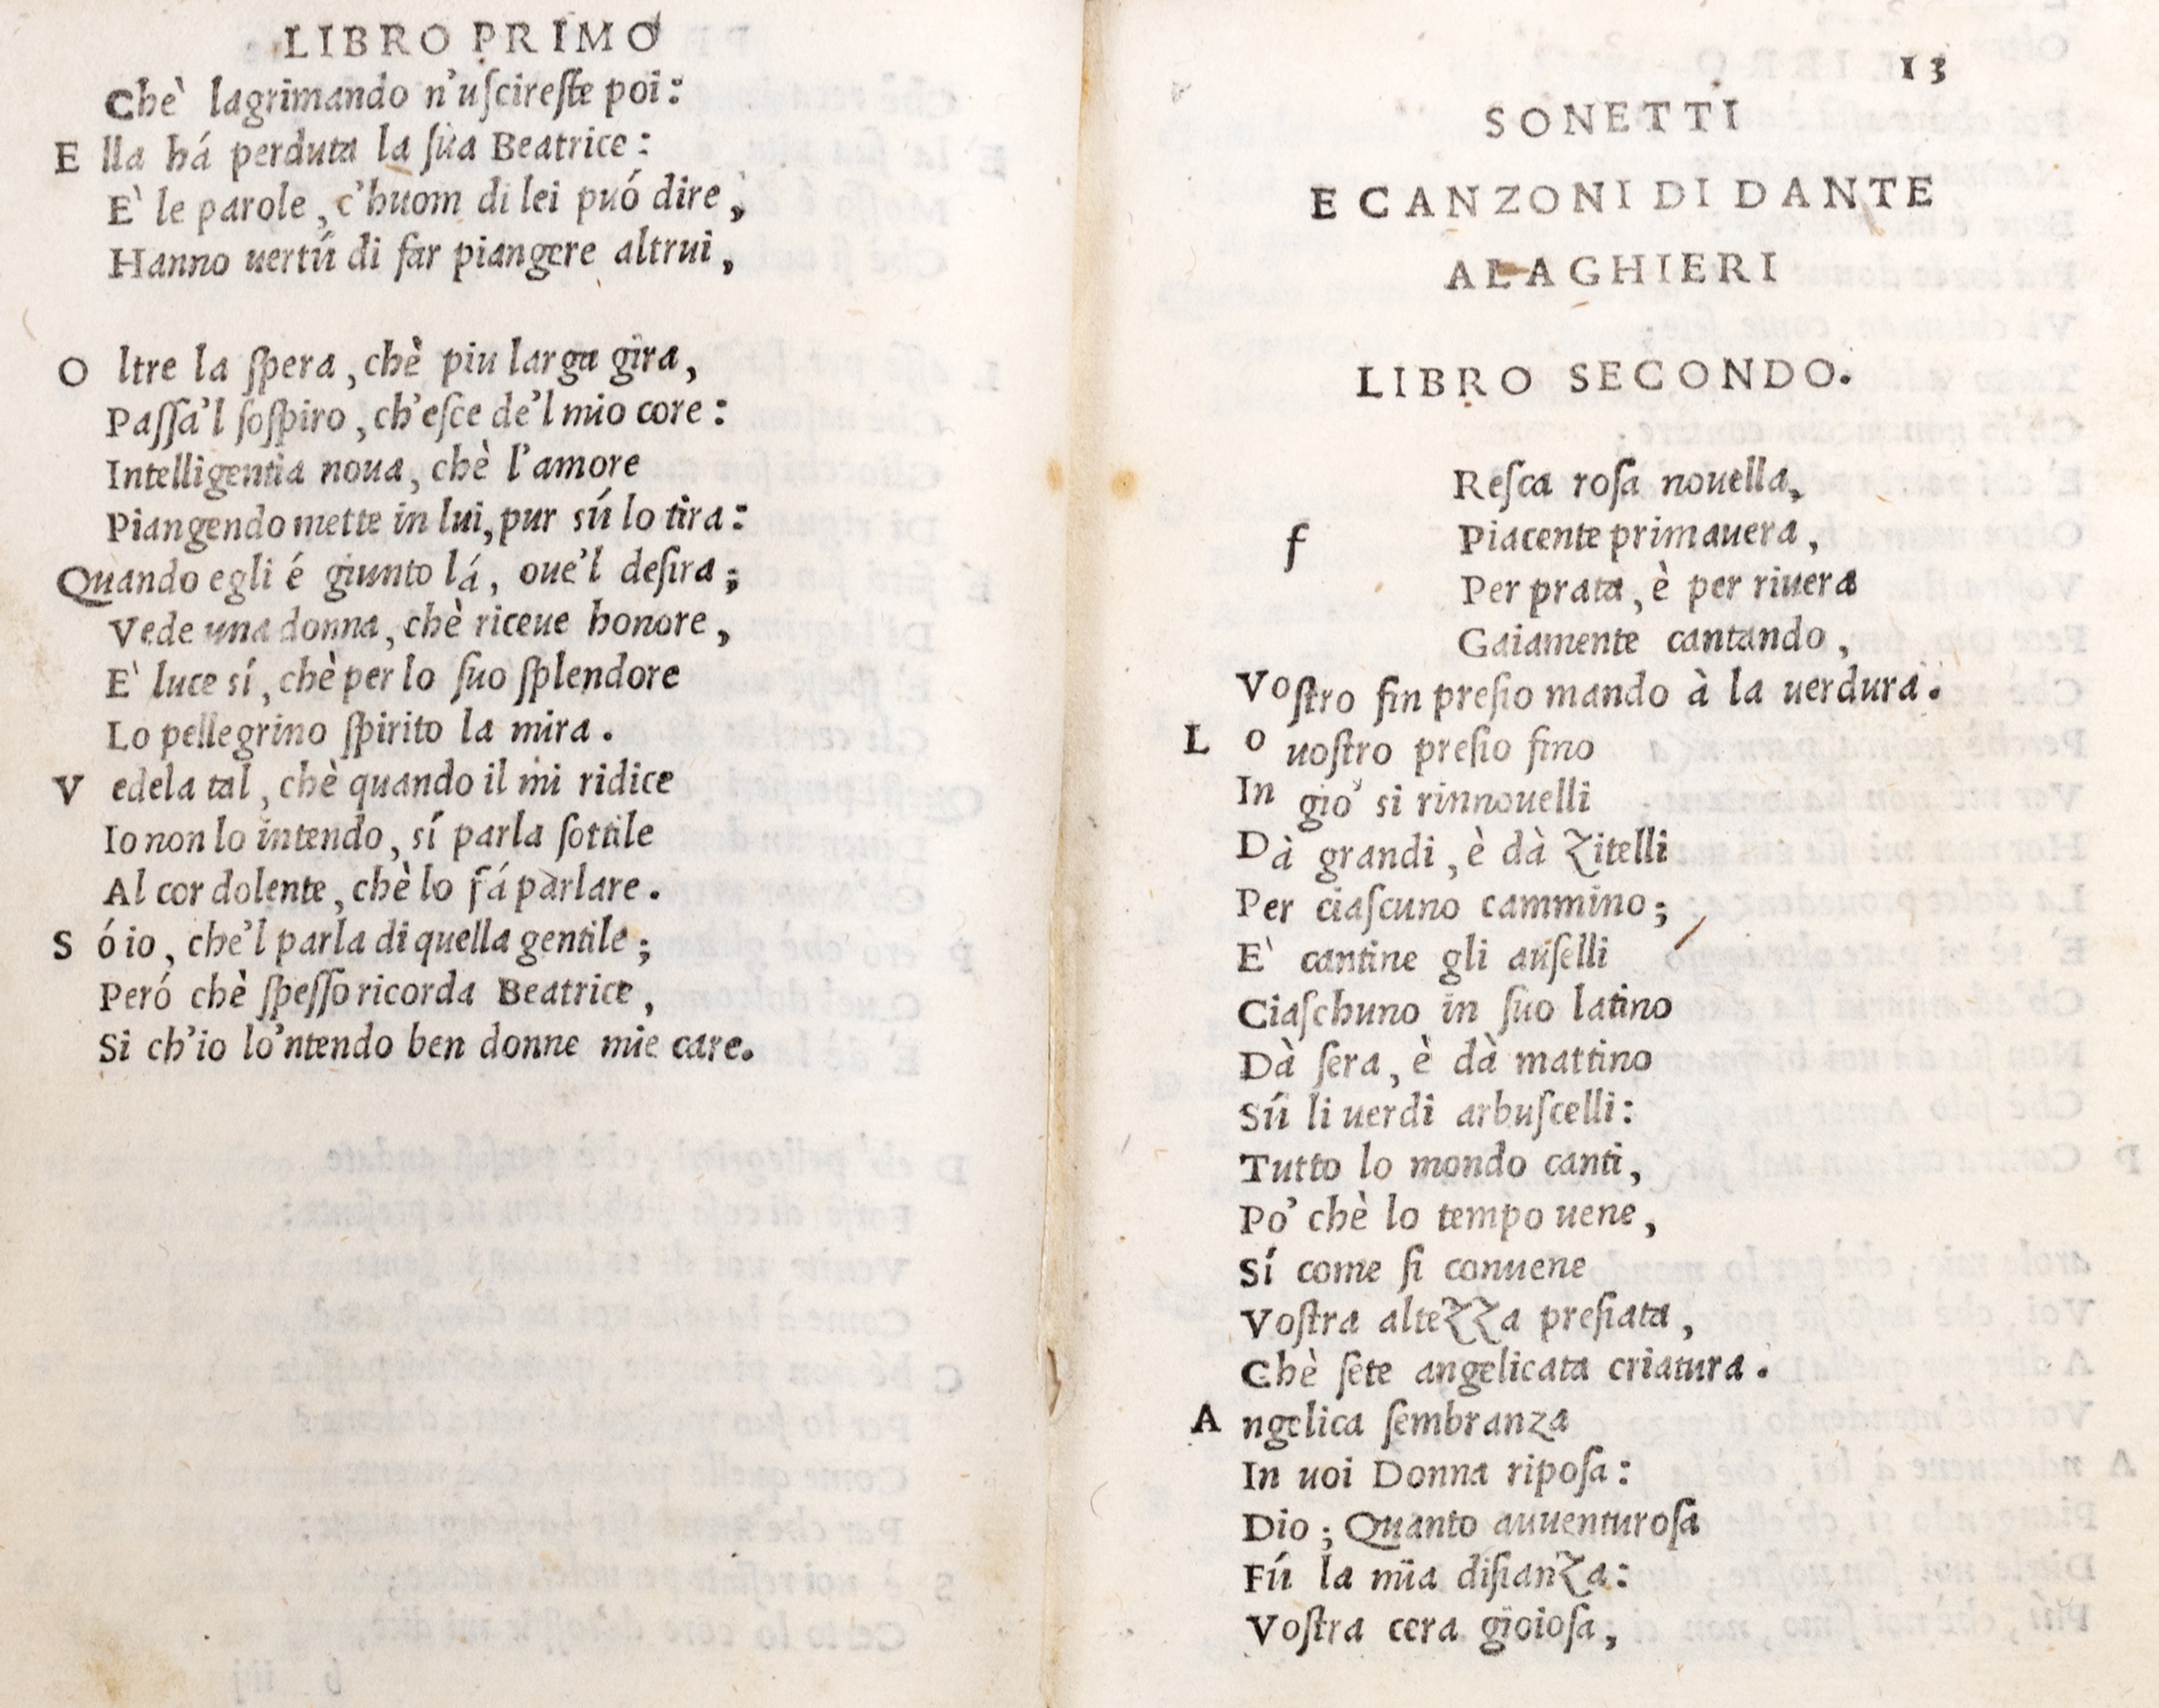 LIBRO PRIMO
Chè lagrimando n'uſcireſte poi:
E lla há perduta la ſua Beatrice:
E' le parole, c'huom di lei puó dire,
Hanno uertú di far piangere altrui,
O ltre la ſpera, chè piu larga gira,
Paſſa'l ſoſpiro, ch'eſce de'l mio core:
Intelligentia noua, chè l'amore
Piangendo mette in lui, pur sú lo tira:
Quando egli é giunto lá, oue'l deſira;
Vede una donna, chè riceue honore,
E' luce sí, chè per lo ſuo ſplendore
Lo pellegrino ſpirito la mira.
V edela tal, chè quando il mi ridice
Io non lo intendo, sí parla ſottile
Al cor dolente, chè lo fá parlare.
S ó io, che'l parla di quella gentile;
Peró chè ſpeſſo ricorda Beatrice,
Si ch'io lo'ntendo ben donne mie care.
13
SONETTI
E CANZONI DI DANTE
ALAGHIERI
LIBRO SECONDO.
Reſca roſa nouella,
f Piacente primauera,
Per prata, è per riuera
Gaiamente cantando,
Voſtro fin preſio mando à la uerdura.
L o uoſtro preſio fino
In gio' si rinnouelli
Dà grandi, è dà zitelli
Per ciaſcuno cammino;
E' cantine gli auſelli
Ciaſchuno in ſuo latino
Dà ſera, è dà mattino
Sú li uerdi arbuſcelli:
Tutto lo mondo canti,
Po' chè lo tempo uene,
Sí come ſi conuene
Voſtra altezza preſiata,
Chè ſete angelicata criatura.
A ngelica ſembranza
In uoi Donna ripoſa:
Dio; Quanto auuenturoſa
Fú la mia diſianza:
Voſtra cera gioioſa,